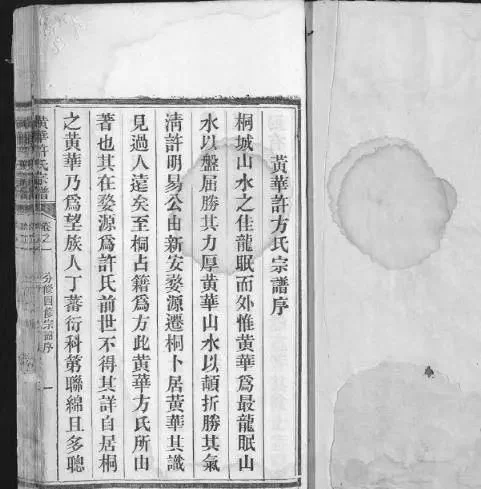 黃華許方氏宗譜序
桐城山水之佳龍眠而外惟黃華爲最龍眠山
水以盤屈勝其力厚黃華山水以顛折勝其氣
淸許明易公由新安婺源遷桐卜居黃華其識
見過人遠矣至桐占籍爲方此黃華方氏所由
著也其在婺源爲許氏前世不得其詳自居桐
之黃華乃爲望族人丁蕃衍科第聯綿且多聰
黃華許氏宗譜
卷之一
分修四修宗譜序
一